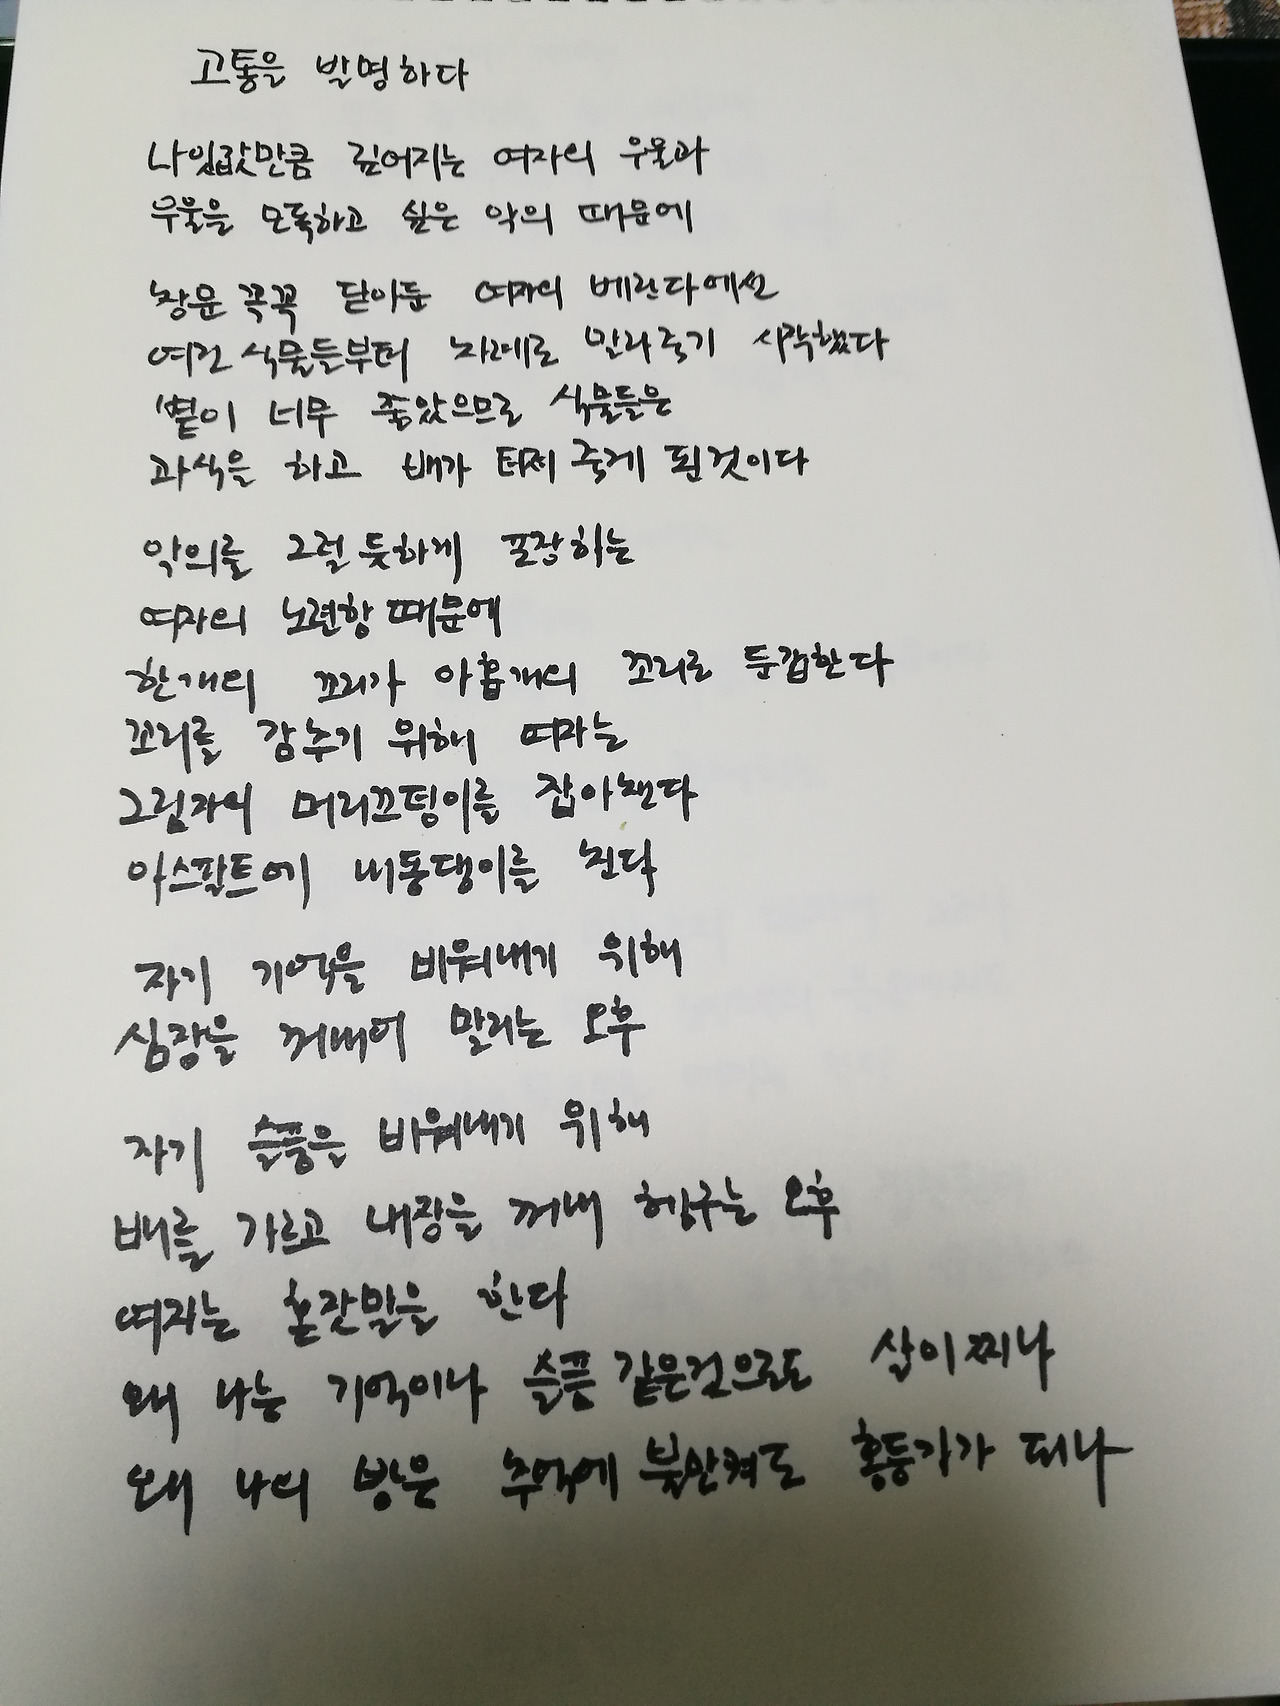 고통을 발명하다
나잇값만큼 깊어지는 여자의 우울과
우울을 모독하고 싶은 악의 때문에
창문 꼭꼭 닫아둔 여자의 베란다에선
여린 식물들부터 차례로 말라죽기 시작했다
볕이 너무 좋았으므로 식물들은
과식을 하고 배가 터져 죽게 된것이다
악의를 그럴 듯하게 포장하는
여자의 노련함 때문에
한개의 꼬리가 아홉개의 꼬리로 둔갑한다
꼬리를 감추기 위해 여자는
그림자의 머리끄덩이를 잡아챈다
아스팔트에 내동댕이를 친다
자기 기억을 비워내기 위해
심장을 꺼내어 말리는 오후
자기 슬픔을 비워내기 위해
배를 가르고 내장을 꺼내 헹구는 오후
여자는 혼잣말을 한다
왜 나는 기억이나 슬픔 같은것으로도 살이찌나
왜 나의 방은 추억에 불만켜도 홍등가가 되나